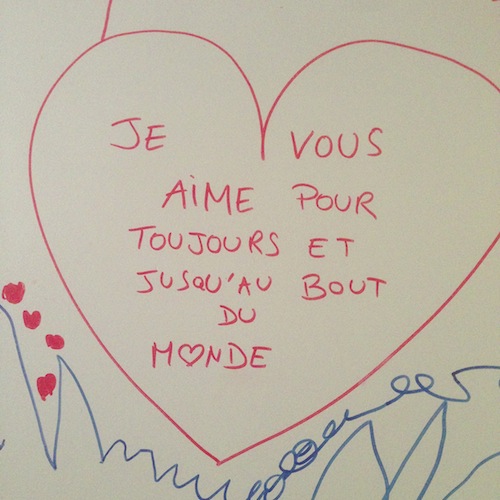 JE VOUS
AIME POUR
TOUJOURS ET
JUSQU'AU BOUT
DU
M♡NDE